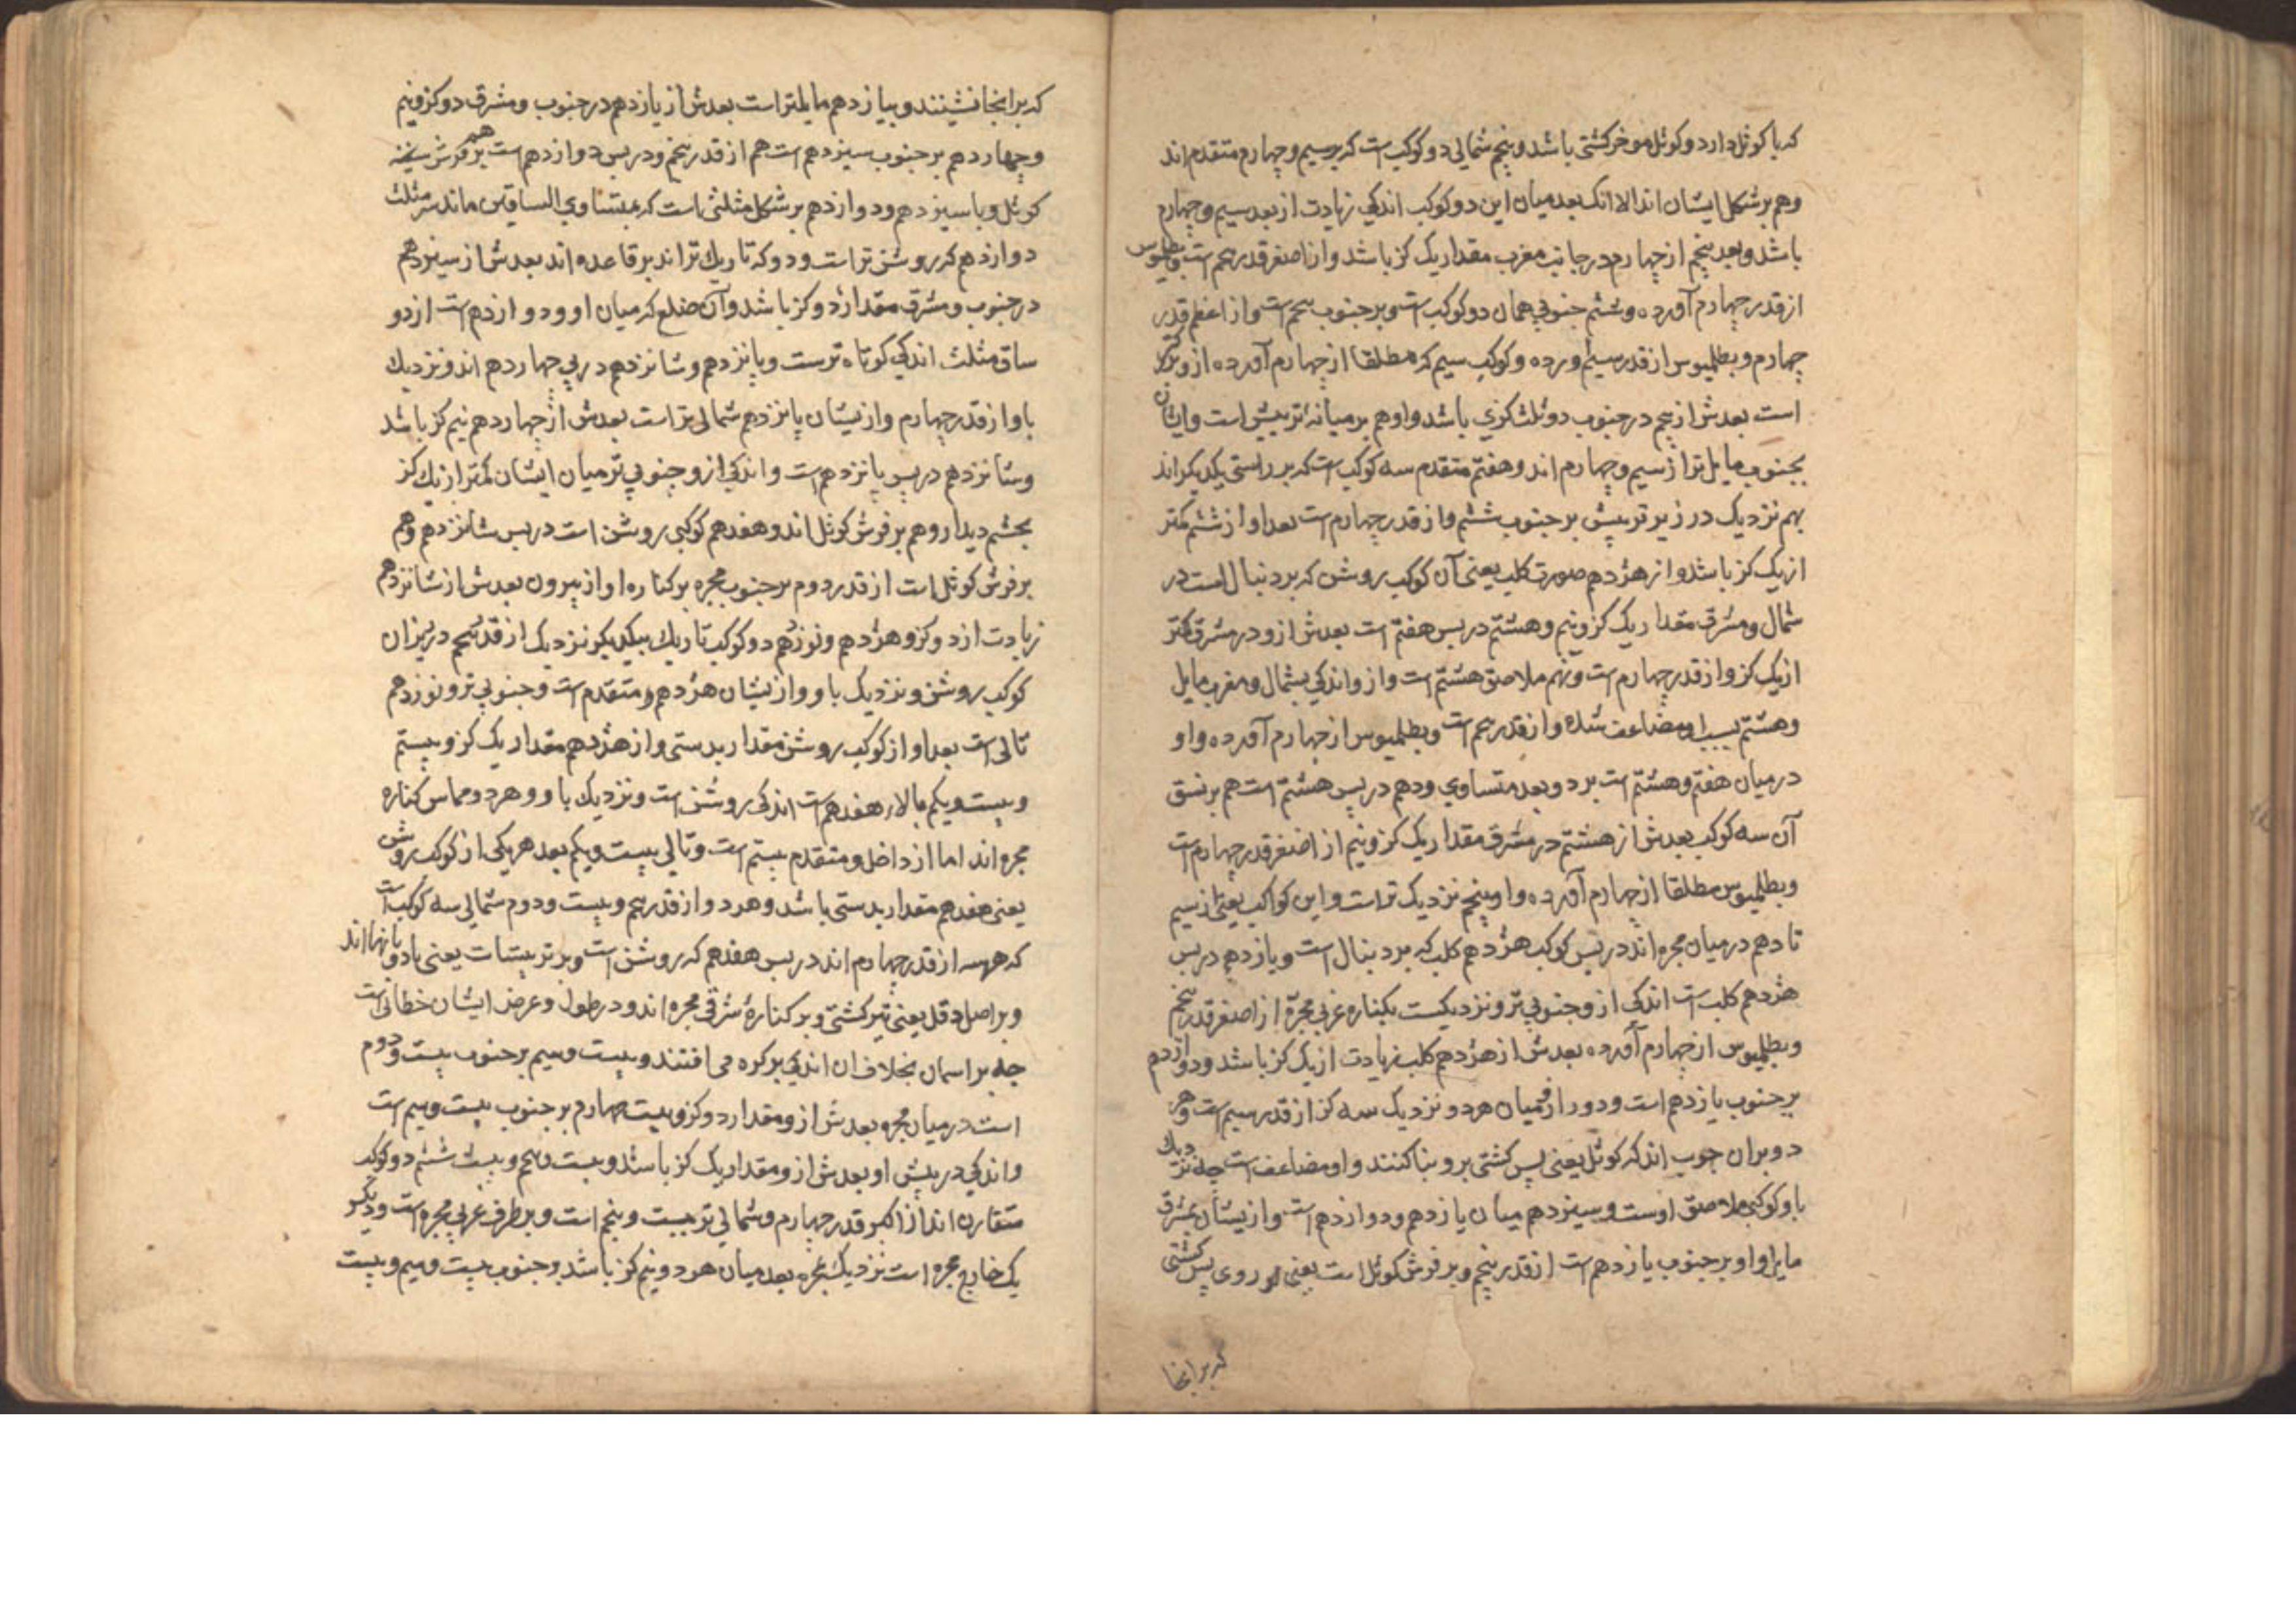 که با کوثل دارد و کوثل موخر کشتی باشد و پنجم شمالی دو کوکب است که بر سیم و چهارم متقدم اند
و هم بر شکل ایشان اند الا انک بعد میان این دو کوکب اندکی زیادت از بعد سیم و چهارم
باشد و بعد پنجم از چهارم در جانب مغرب مقدار یک کز باشد و از اصغر قدر پنجم است و بطلمیوس
از قدر چهارم آورده و ششم جنوبی همان دو کوکب است و بر جنوب پنجم است و از اعظم قدر
چهارم و بطلمیوس از قدر سیم آورده و کوکب سیم که مطلقا از چهارم آورده از و بزرکتر
است بعدش از پنجم در جنوب دو ثلث کزی باشد و او هم بر میانه ترسش است و ایشان
بجنوب مایل تر از سیم و چهارم اند و هفتم متقدم سه کوکب است که بر راستی یکدیکر اند
بهم نزدیک در زیر ترس بر جنوب ششم و از قدر چهارم است بعد او از ششم کمتر
از یک کز باشد و از هژدهم صورت کلب یعنی آن کوکب روشن که بر دنبال است در
شمال و مشرق مقدار یک کز و نیم و هشتم در پس هفتم است بعدش از و در مشرق کمتر
از یک کز و از قدر چهارم است و نهم ملاصق هشتم است و از و اندکی بشمال و مغرب مایل
و هشتم بسبب او مضاعف شده و از قدر پنجم است و بطلمیوس از چهارم آورده و او
در میان هفتم و هشتم است بر دو بعد متساوی و دهم در پس هشتم است هم بر نسق
آن سه کوکب بعدش از هشتم در مشرق مقدار یک کز و نیم از اصغر قدر چهارم است
و بطلمیوس مطلقا از چهارم آورده و او بپنجم نزدیک تر است و این کواکب یعنی از سیم
تا دهم در میان مجره اند در پس کوکب هژدهم کلب که بر دنبال است و یازدهم در پس
هژدهم کلب است اندکی از و جنوبی تر و نزدیکست بکناره غربی مجره از اصغر قدر پنجم
و بطلمیوس از چهارم آورده بعدش از هژدهم کلب زیادت از یک کز باشد و دوازدهم
بر جنوب یازدهم است و دور از و میان هر دو نزدیک سه کز از قدر سیم است و هر
دو بر ان چوب اند که کوثل یعنی پس کشتی برو بنا کنند و او مضاعف است چه نزدیک
باو کوکبی ملاصق اوست و سیزدهم میان یازدهم و دوازدهم است و از یشان بمشرق
مایل و او بر جنوب یازدهم است از قدر پنجم و بر فرش کوثل است یعنی بر روی پس کشتی
که بر انجا
که بر انجا نشینند و بیازدهم مایلتر است بعدش از یازدهم در جنوب و مشرق دو کز و نیم
و چهاردهم بر جنوب سیزدهم است هم از قدر پنجم و در پس دوازدهم است هم بر فرش
کوثل و با سیزدهم و دوازدهم بر شکل مثلثی است که بمتساوی الساقین ماند سر مثلث
دوازدهم که روشن تر است و دو که تاریک تر اند بر قاعده اند بعدش از سیزدهم
در جنوب و مشرق مقدار دو کز باشد و آن ضلع که میان او و دوازدهم است از دو
ساق مثلث اندکی کوتاه ترست و پانزدهم و شانزدهم در پی چهاردهم اند و نزدیک
باو از قدر چهارم و از یشان پانزدهم شمالی تر است بعدش از چهاردهم نیم کز باشد
و شانزدهم در پس پانزدهم است و اندکی از و جنوبی تر میان ایشان کمتر از یک کز
بچشم دیدار و هم بر فرش کوثل اند و هفدهم کوکبی روشن است در پس شانزدهم و هم
بر فرش کوثل است از قدر دوم بر جنوب مجره بر کناره او از بیرون بعدش از شانزدهم
زیادت از دو کز و هژدهم و نوزدهم دو کوکب تاریک بیکدیکر نزدیک از قدر پنجم در زیر ان
کوکب روشن و نزدیک باو و از یشان هژدهم متقدم است و جنوبی تر و نوزدهم
تالی است بعد او از کوکب روشن مقدار بدستی و از هژدهم مقدار یک کز و بیستم
و بیست و یکم بالاء هفدهم است اندکی روشن است و نزدیک باو و هر دو مماس کناره
مجره اند اما از داخل و متقدم بیستم است و تالی بیست و یکم بعد هر یکی از کوکب روشن
یعنی هفدهم مقدار بدستی باشد و هر دو از قدر پنجم و بیست و دوم شمالی سه کوکب است
که هر سه از قدر چهارم اند در پس هفدهم که روشن است و بر ترسات یعنی بادبانها اند
و بر اصل دقل یعنی تیر کشتی و بر کنارهٔ شرقی مجره اند و در طول و عرض ایشان خطائی است
چه بر اسمان بخلاف ان اند که بر کره می افتند و بیست و سیم بر جنوب بیست و دوم
است در میان مجره بعدش از و مقدار دو کز و بیست و چهارم بر جنوب بیست و سیم است
و اندکی در پیش او بعدش از و مقدار یک کز باشد و بیست و پنجم و بیست و ششم دو کوکب
متقارن اند از اکبر قدر چهارم و شمالی تر بیست و پنجم است و بر طرف غربی مجره است و دیکر
یک خارج مجره است نزدیک بمجره بعد میان هر دو نیم کز باشد و جنوب بیست و سیم و بیست